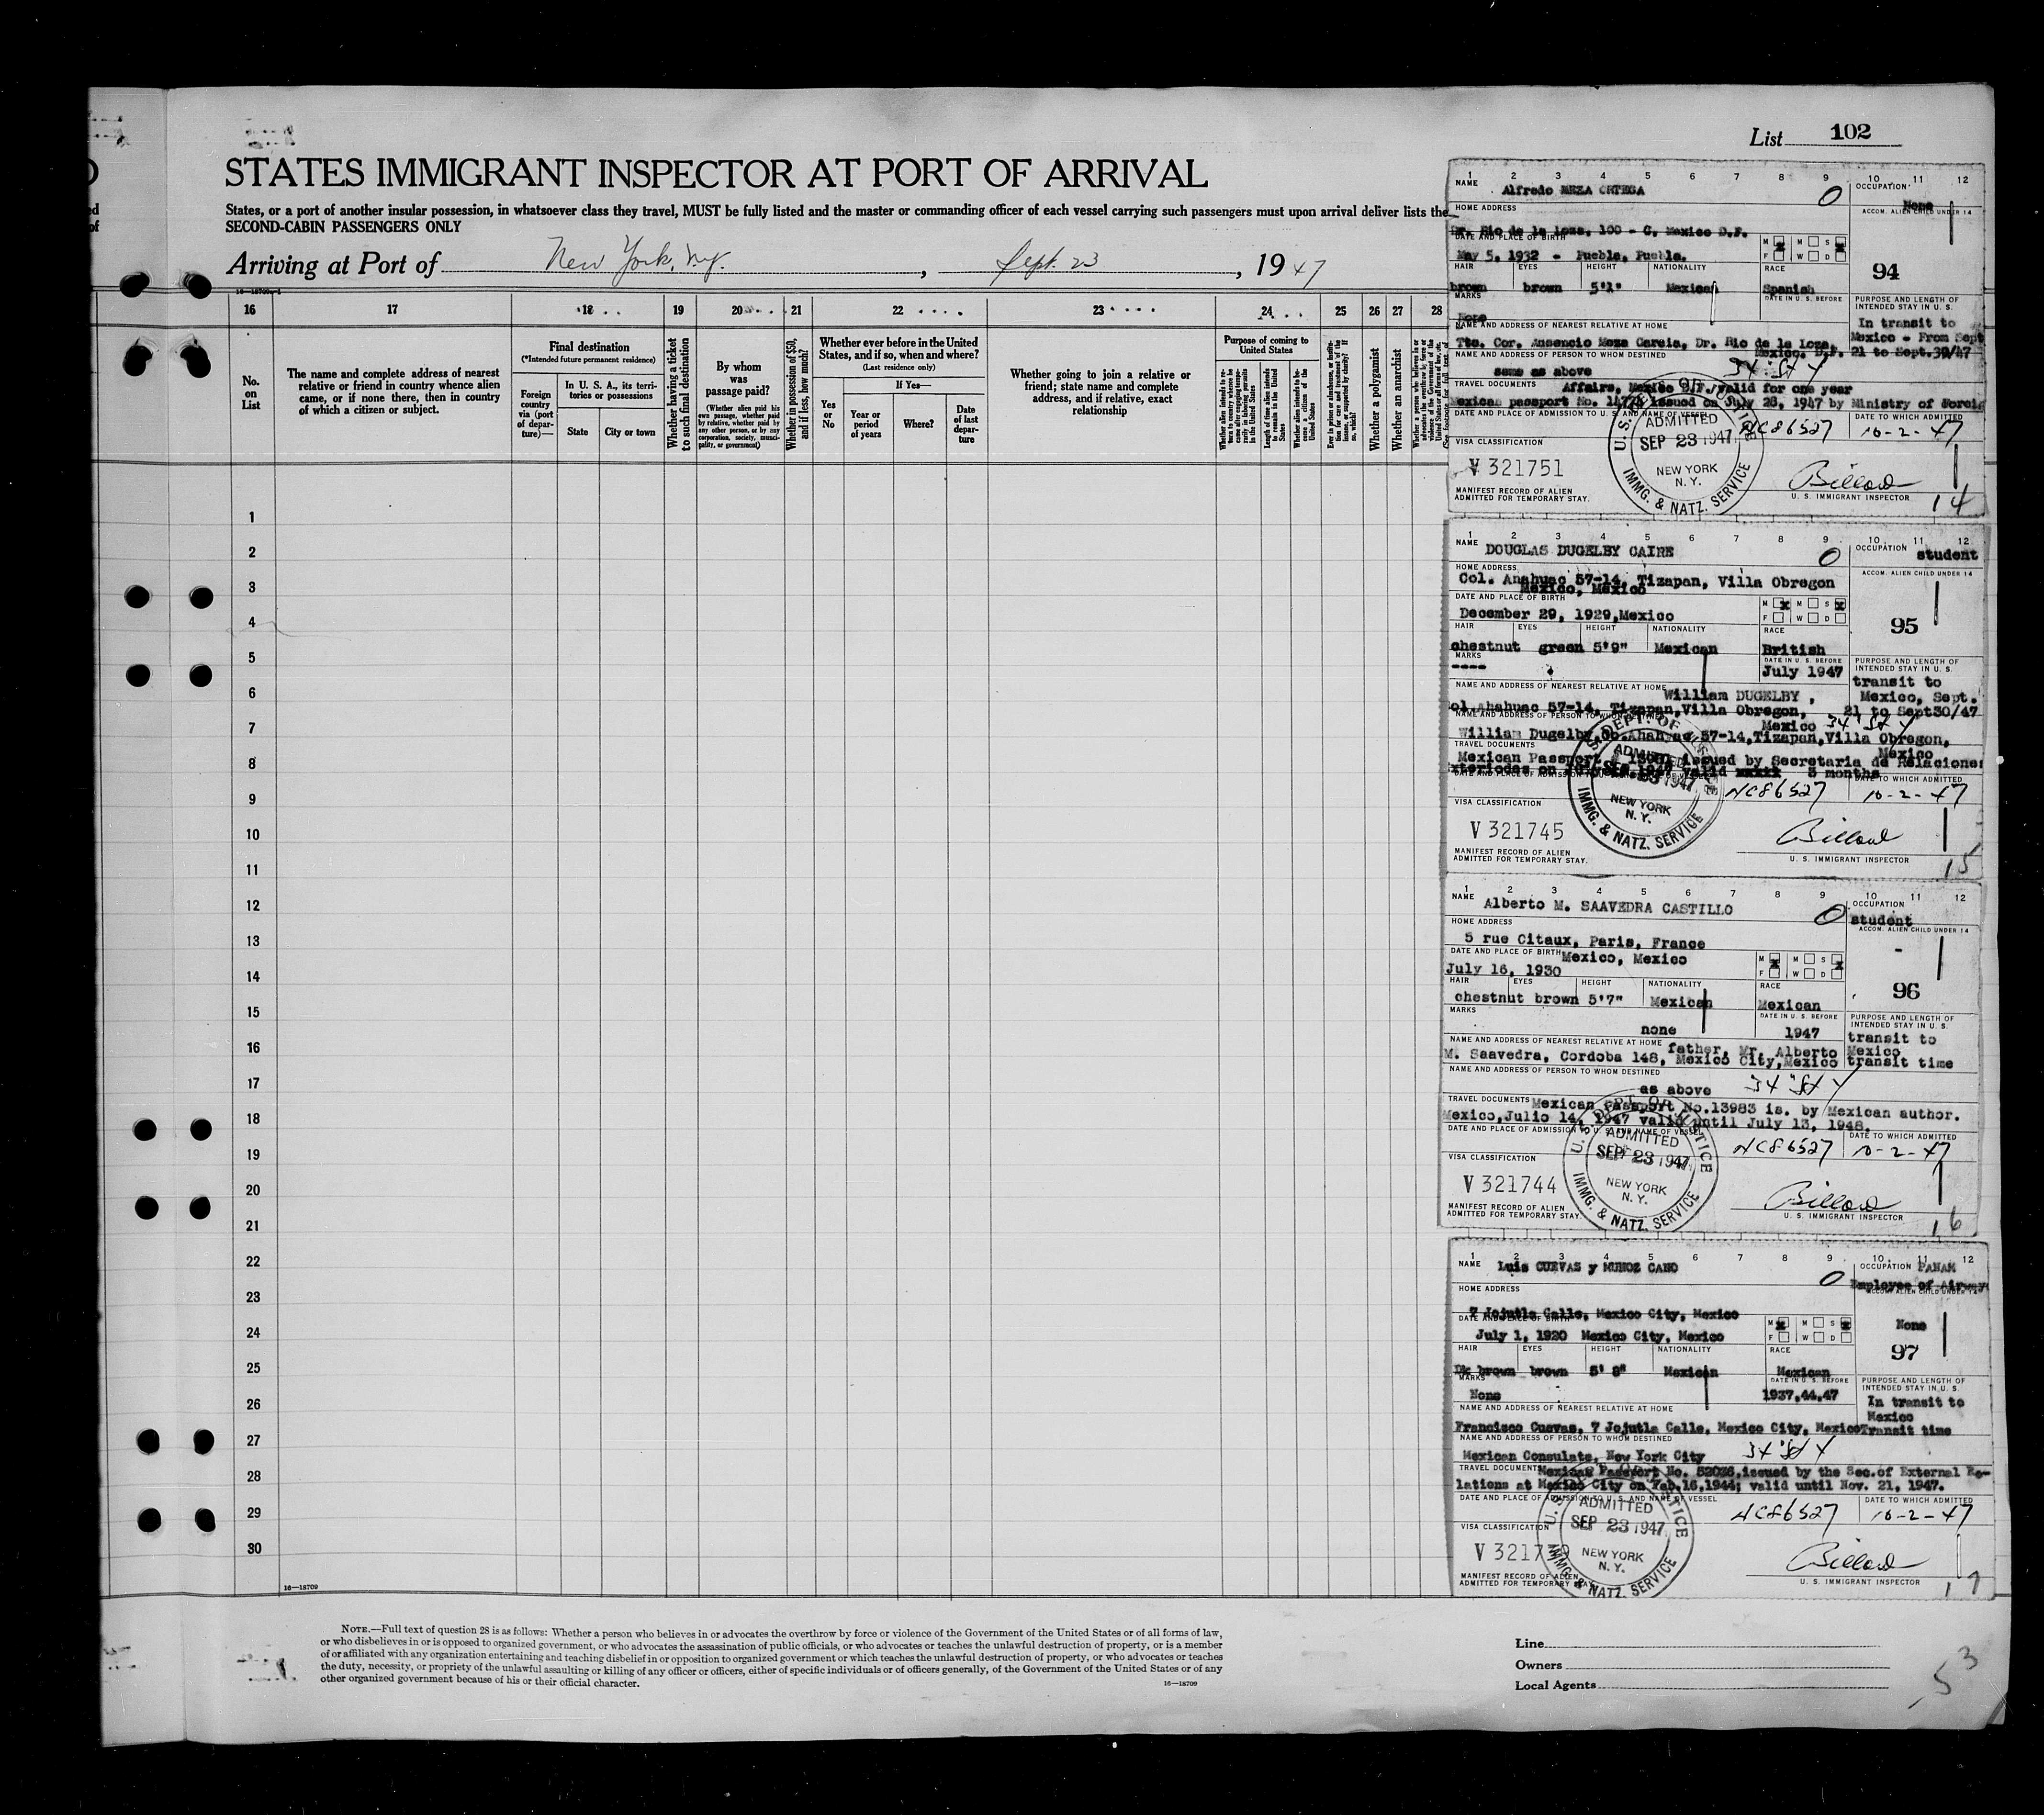 List 102
STATES IMMIGRANT INSPECTOR AT PORT OF ARRIVAL
States, or a port of another insular possession, in whatsoever class they travel, MUST be fully listed and the master or commanding officer of each vessel carrying such passengers must upon arrival deliver lists the
SECOND-CABIN PASSENGERS ONLY
Arriving at Port of New York, N.Y. , Sept. 23 , 1947
16 17 18 19 20 21 22 23 24 25 26 27 28
No. on List
The name and complete address of nearest relative or friend in country whence alien came, or if none there, then in country of which a citizen or subject.
Final destination
(*Intended future permanent residence)
Foreign country via (port of departure)—
In U. S. A., its territories or possessions
State
City or town
Whether having a ticket to such final destination
By whom was passage paid?
(Whether alien paid his own passage, whether paid by relative, whether paid by any other person, or by any corporation, society, municipality, or government)
Whether in possession of $50, and if less, how much?
Whether ever before in the United States, and if so, when and where?
(Last residence only)
If Yes—
Yes or No
Year or period of years
Where?
Date of last departure
Whether going to join a relative or friend; state name and complete address, and if relative, exact relationship
Purpose of coming to United States
Length of time alien intends to remain in the United States
Whether alien intends to become a citizen of the United States
Whether a polygamist
Whether an anarchist
1
2
3
4
5
6
7
8
9
10
11
12
13
14
15
16
17
18
19
20
21
22
23
24
25
26
27
28
29
30
16—18709
NOTE.—Full text of question 28 is as follows: Whether a person who believes in or advocates the overthrow by force or violence of the Government of the United States or of all forms of law,
or who disbelieves in or is opposed to organized government, or who advocates the assassination of public officials, or who advocates or teaches the unlawful destruction of property, or is a member
of or affiliated with any organization entertaining and teaching disbelief in or opposition to organized government or which teaches the unlawful destruction of property, or who advocates or teaches
the duty, necessity, or propriety of the unlawful assaulting or killing of any officer or officers, either of specific individuals or of officers generally, of the Government of the United States or of any
other organized government because of his or their official character.
16—18709
1 2 3 4 5 6 7 8 9 10 11 12
NAME Alfredo MEZA ORTEGA 0
OCCUPATION None
HOME ADDRESS
ACCOM. ALIEN CHILD UNDER 14
Dr. Rio de la Loza, 100 - C, Mexico D.F.
DATE AND PLACE OF BIRTH
May 5, 1932 - Puebla, Puebla.
M F M W S D
94
HAIR EYES HEIGHT NATIONALITY RACE
brown brown 5'1" Mexican Spanish
MARKS None
DATE IN U. S. BEFORE
PURPOSE AND LENGTH OF INTENDED STAY IN U. S.
In transit to
Mexico - From Sept
21 to Sept.30/47
NAME AND ADDRESS OF NEAREST RELATIVE AT HOME
Tte. Cor. Ausencio Meza Garcia, Dr. Rio de la Loza,
Mexico. D.F.
NAME AND ADDRESS OF PERSON TO WHOM DESTINED
same as above 34 St Y
TRAVEL DOCUMENTS Affairs, Mexico D.F. valid for one year
Mexican passport No. issued on July 28, 1947 by Ministry of Foreig
DATE AND PLACE OF ADMISSION TO U. S. AND NAME OF VESSEL
NC86527
DATE TO WHICH ADMITTED
10-2-47
VISA CLASSIFICATION
V 321751
ADMITTED
SEP 23 1947
NEW YORK
N. Y.
IMMG. & NATZ. SERVICE
MANIFEST RECORD OF ALIEN
ADMITTED FOR TEMPORARY STAY.
Billard
U. S. IMMIGRANT INSPECTOR
14
1 2 3 4 5 6 7 8 9 10 11 12
NAME DOUGLAS DUGELBY CAIRE 0
OCCUPATION student
HOME ADDRESS
ACCOM. ALIEN CHILD UNDER 14
Col. Anahuac 57-14, Tizapan, Villa Obregon
Mexico, Mexico
DATE AND PLACE OF BIRTH
December 29, 1929,Mexico
M F M W S D
95
HAIR EYES HEIGHT NATIONALITY RACE
chestnut green 5'9" Mexican British
MARKS ----
DATE IN U. S. BEFORE
July 1947
PURPOSE AND LENGTH OF INTENDED STAY IN U. S.
transit to
Mexico, Sept.
21 to Sept30/47
NAME AND ADDRESS OF NEAREST RELATIVE AT HOME William DUGELBY ,
ol.Ahahuac 57-14, Tizapan,Villa Obregon,
Mexico 34 St Y
NAME AND ADDRESS OF PERSON TO WHOM DESTINED
William Dugelby, 57-14,Tizapan,Villa Obregon,
Mexico
TRAVEL DOCUMENTS
Mexican Passport issued by Secretaria de Relaciones
valid 3 months
DATE TO WHICH ADMITTED
NC86527 10-2-47
VISA CLASSIFICATION
V 321745
ADMITTED
SEP 23 1947
NEW YORK
N. Y.
IMMG. & NATZ. SERVICE
MANIFEST RECORD OF ALIEN
ADMITTED FOR TEMPORARY STAY.
Billard
U. S. IMMIGRANT INSPECTOR
15
1 2 3 4 5 6 7 8 9 10 11 12
NAME Alberto M. SAAVEDRA CASTILLO 0
OCCUPATION student
HOME ADDRESS
ACCOM. ALIEN CHILD UNDER 14
5 rue Citaux, Paris, France -
DATE AND PLACE OF BIRTH Mexico, Mexico
July 16, 1930
M F M W S D
96
HAIR EYES HEIGHT NATIONALITY RACE
chestnut brown 5'7" Mexican Mexican
MARKS none
DATE IN U. S. BEFORE
1947
PURPOSE AND LENGTH OF INTENDED STAY IN U. S.
transit to
Mexico
transit time
NAME AND ADDRESS OF NEAREST RELATIVE AT HOME father, Mr. Alberto
M. Saavedra, Cordoba 148, Mexico City,Mexico
NAME AND ADDRESS OF PERSON TO WHOM DESTINED
as above 34 St Y
TRAVEL DOCUMENTS Mexican Passport No.13983 is. by Mexican author.
Mexico,Julio 14, 1947 valid until July 13, 1948.
DATE AND PLACE OF ADMISSION TO U. S. AND NAME OF VESSEL
NC86527
DATE TO WHICH ADMITTED
10-2-47
VISA CLASSIFICATION
V 321744
ADMITTED
SEP 23 1947
NEW YORK
N. Y.
IMMG. & NATZ. SERVICE
MANIFEST RECORD OF ALIEN
ADMITTED FOR TEMPORARY STAY.
Billard
U. S. IMMIGRANT INSPECTOR
16
1 2 3 4 5 6 7 8 9 10 11 12
NAME Luis CUEVAS y MUNOZ CANO 0
OCCUPATION PANAM
Employee of Airway
HOME ADDRESS
ACCOM. ALIEN CHILD UNDER 14
7 Jojutla Calle, Mexico City, Mexico
DATE AND PLACE OF BIRTH
July 1, 1920 Mexico City, Mexico
M F M W S D
None
97
HAIR EYES HEIGHT NATIONALITY RACE
Dk brown brown 5' 8" Mexican Mexican
MARKS None
DATE IN U. S. BEFORE
1937,44,47
PURPOSE AND LENGTH OF INTENDED STAY IN U. S.
In transit to
Mexico
Transit time
NAME AND ADDRESS OF NEAREST RELATIVE AT HOME
Francisco Cuevas, 7 Jojutla Calle, Mexico City, Mexico
NAME AND ADDRESS OF PERSON TO WHOM DESTINED
Mexican Consulate, New York City 34 St Y
TRAVEL DOCUMENTS Mexican Passport No. 52036,issued by the Sec.of External Re-
lations at Mexico City on Feb.16,1944; valid until Nov. 21, 1947.
DATE AND PLACE OF ADMISSION TO U. S. AND NAME OF VESSEL
NC86527
DATE TO WHICH ADMITTED
10-2-47
VISA CLASSIFICATION
V 3217
ADMITTED
SEP 23 1947
NEW YORK
N. Y.
IMMG. & NATZ. SERVICE
MANIFEST RECORD OF ALIEN
ADMITTED FOR TEMPORARY STAY
Billard
U. S. IMMIGRANT INSPECTOR
17
Line
Owners
Local Agents
53